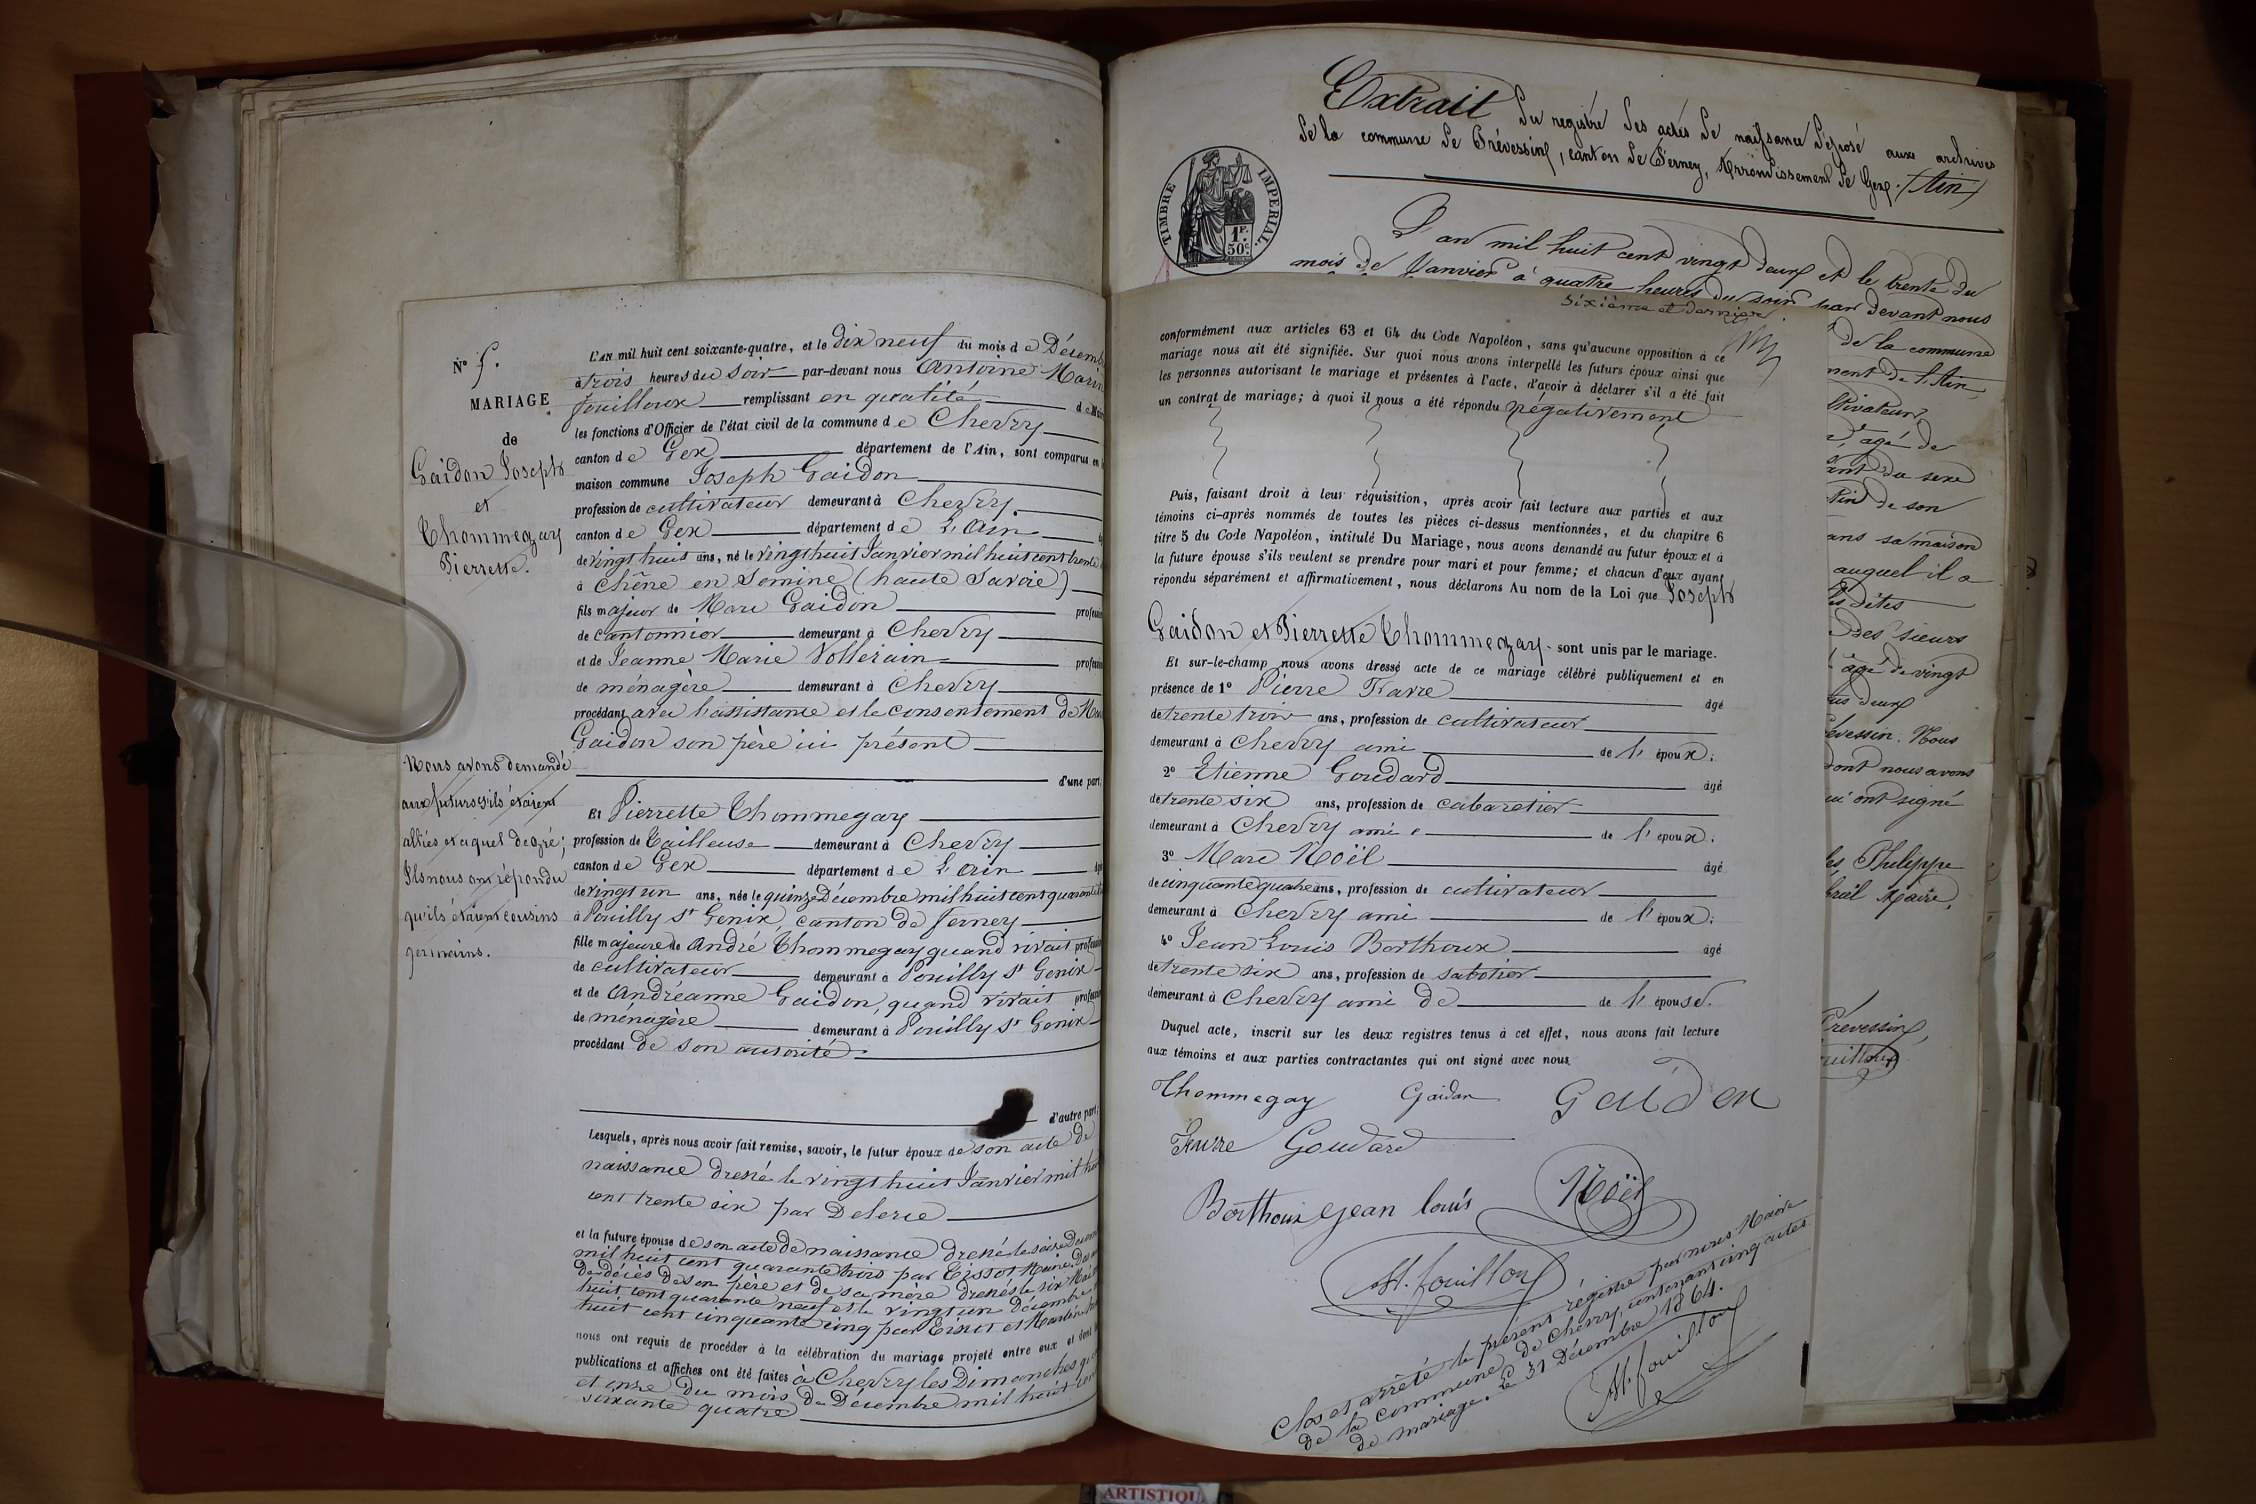 N° 5.
MARIAGE
de
Gaidon Joseph
et
Thommegay
Pierrette.
Nous avons demandé
aux futurs s'ils étaient
alliés et à quel degré;
Ils nous ont répondu
qu'ils étaient cousins
germains.
L'AN mil huit cent soixante-quatre, et le dix neuf du mois de Décemb
à trois heures du soir par-devant nous Antoine Marin
fouilloux remplissant en qualité de Maire
les fonctions d'Officier de l'état civil de la commune de Chevry
canton de Gex département de l'Ain, sont comparus en
maison commune Joseph Gaidon
profession de cultivateur demeurant à Chevry
canton de Gex département de L'Ain
de vingt huit ans, né le vingt huit Janvier mil huit cent trente
à Chêne en Semine (haute Savoie)
fils majeur de Marc Gaidon profession
de cantonnier demeurant à Chevry
et de Jeanne Marie Vollerain profession
de ménagère demeurant à Chevry
procédant avec l'assistance et le consentement de Marc
Gaidon son père ici présent
d'une part;
Et Pierrette Thommegay
profession de Tailleuse demeurant à Chevry
canton de Gex département de L'Ain
de vingt un ans, née le quinze Décembre mil huit cent quarante
à Pouilly St Genix, canton de Ferney
fille majeure de André Thommegay quand vivait profession
de cultivateur demeurant à Pouilly St Genix
et de Andréanne Gaidon, quand vivait profession
de ménagère demeurant à Pouilly St Genix
procédant de son autorité
d'autre part;
Lesquels, après nous avoir fait remise, savoir, le futur époux de son acte de
naissance dressé le vingt huit Janvier mil huit
cent trente six par Delerce
et la future épouse de son acte de naissance dressé le seize Décem
mil huit cent quarante trois par Tissot Maire. Des
de décès de son père et de sa mère dressés le six Mai
huit cent quarante neuf et le vingt un décembre
huit cent cinquante cinq par Tissot et Martin
nous ont requis de procéder à la célébration du mariage projeté entre eux et dont
publications et affiches ont été faites à Chevry les Dimanches
et onze du mois de Décembre mil huit cent
soixante quatre
Extrait Du registre des actes de naissance déposé aux archives
de la commune de Prévessin, canton de Ferney, Arrondissement de Gex. (Ain)
TIMBRE IMPERIAL
1F.
50c.
L'an mil huit cent vingt deux et le trente du
mois de Janvier à quatre heures du soir par devant nous
Sixième et dernier.
conformément aux articles 63 et 64 du Code Napoléon, sans qu'aucune opposition à ce
mariage nous ait été signifiée. Sur quoi nous avons interpellé les futurs époux ainsi que
les personnes autorisant le mariage et présentes à l'acte, d'avoir à déclarer s'il a été fait
un contrat de mariage; à quoi il nous a été répondu négativement
Puis, faisant droit à leur réquisition, après avoir fait lecture aux parties et aux
témoins ci-après nommés de toutes les pièces ci-dessus mentionnées, et du chapitre 6
titre 5 du Code Napoléon, intitulé Du Mariage, nous avons demandé au futur époux et à
la future épouse s'ils veulent se prendre pour mari et pour femme; et chacun d'eux ayant
répondu séparément et affirmativement, nous déclarons Au nom de la Loi que Joseph
Gaidon et Pierrette Thommegay sont unis par le mariage.
Et sur-le-champ nous avons dressé acte de ce mariage célébré publiquement et en
présence de 1° Pierre Favre âgé
de trente trois ans, profession de cultivateur
demeurant à Chevry ami de l'époux;
2° Etienne Goudard âgé
de trente six ans, profession de cabaretier
demeurant à Chevry ami de l'époux;
3° Marc Noël âgé
de cinquante quatre ans, profession de cultivateur
demeurant à Chevry ami de l'époux;
4° Jean Louis Borthoux âgé
de trente six ans, profession de sabotier
demeurant à Chevry ami de de l'épouse.
Duquel acte, inscrit sur les deux registres tenus à cet effet, nous avons fait lecture
aux témoins et aux parties contractantes qui ont signé avec nous
Thommegay Gaidon Gaidon
Favre Goudard
Borthoux Jean louis Noël
M. fouilloux
Clos et arrêté le présent régistre par nous Maire
de la commune de Chevry, contenant cinq actes
de mariage. Le 31 Décembre 1864.
M. fouilloux
de la commune
ment de l'Ain,
ltivateur,
âgé de
ant du sexe
tin de son
ans sa maison
auquel il a
dites
des sieurs
âgé de vingt
deux
évessin. Nous
dont nous avons
ui ont signé
Philippe
Maire.
Prévessin,
ouilloux
ARTISTIQU